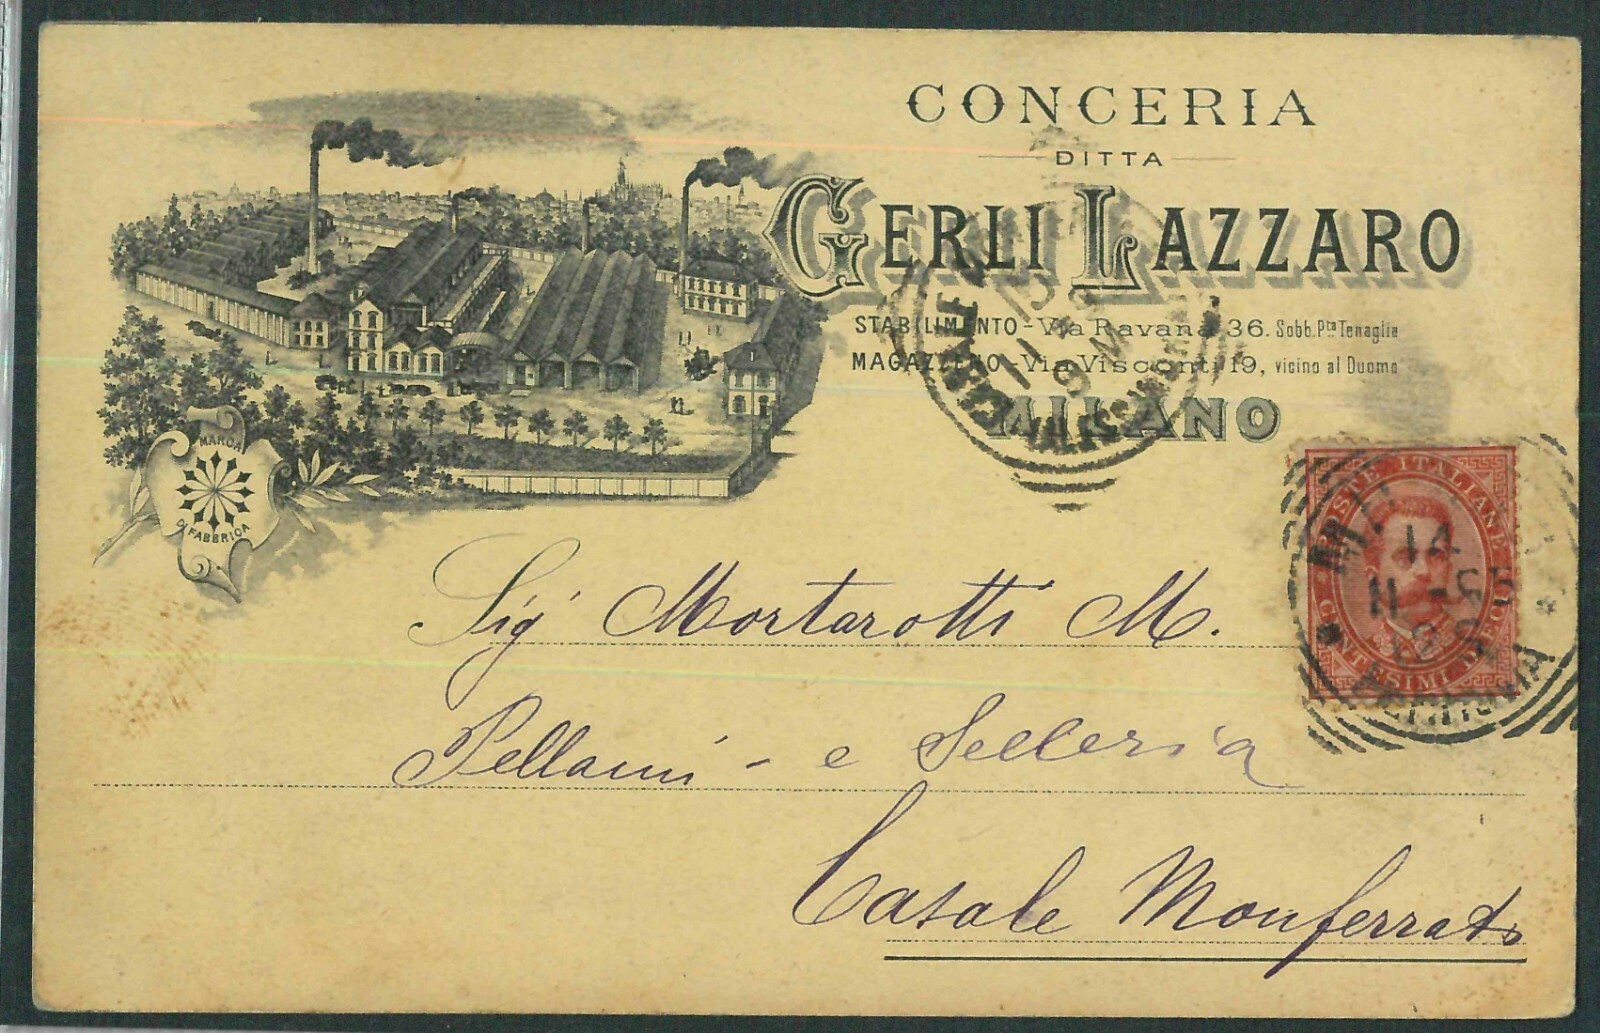 CONCERIA
DITTA
GERLI LAZZARO
STABILIMENTO - Via Ravana 36. Sobb. Pta Tenaglia
MAGAZZENO - Via Visconti 19, vicino al Duomo
MILANO
MARCA
DI FABBRICA
POSTE ITALIANE
CENTESIMI DIECI
MILANO
FERROVIA
CASALE MONFERRATO
Sig. Mortarotti M.
Pellami - e Selleria
Casale Monferrato